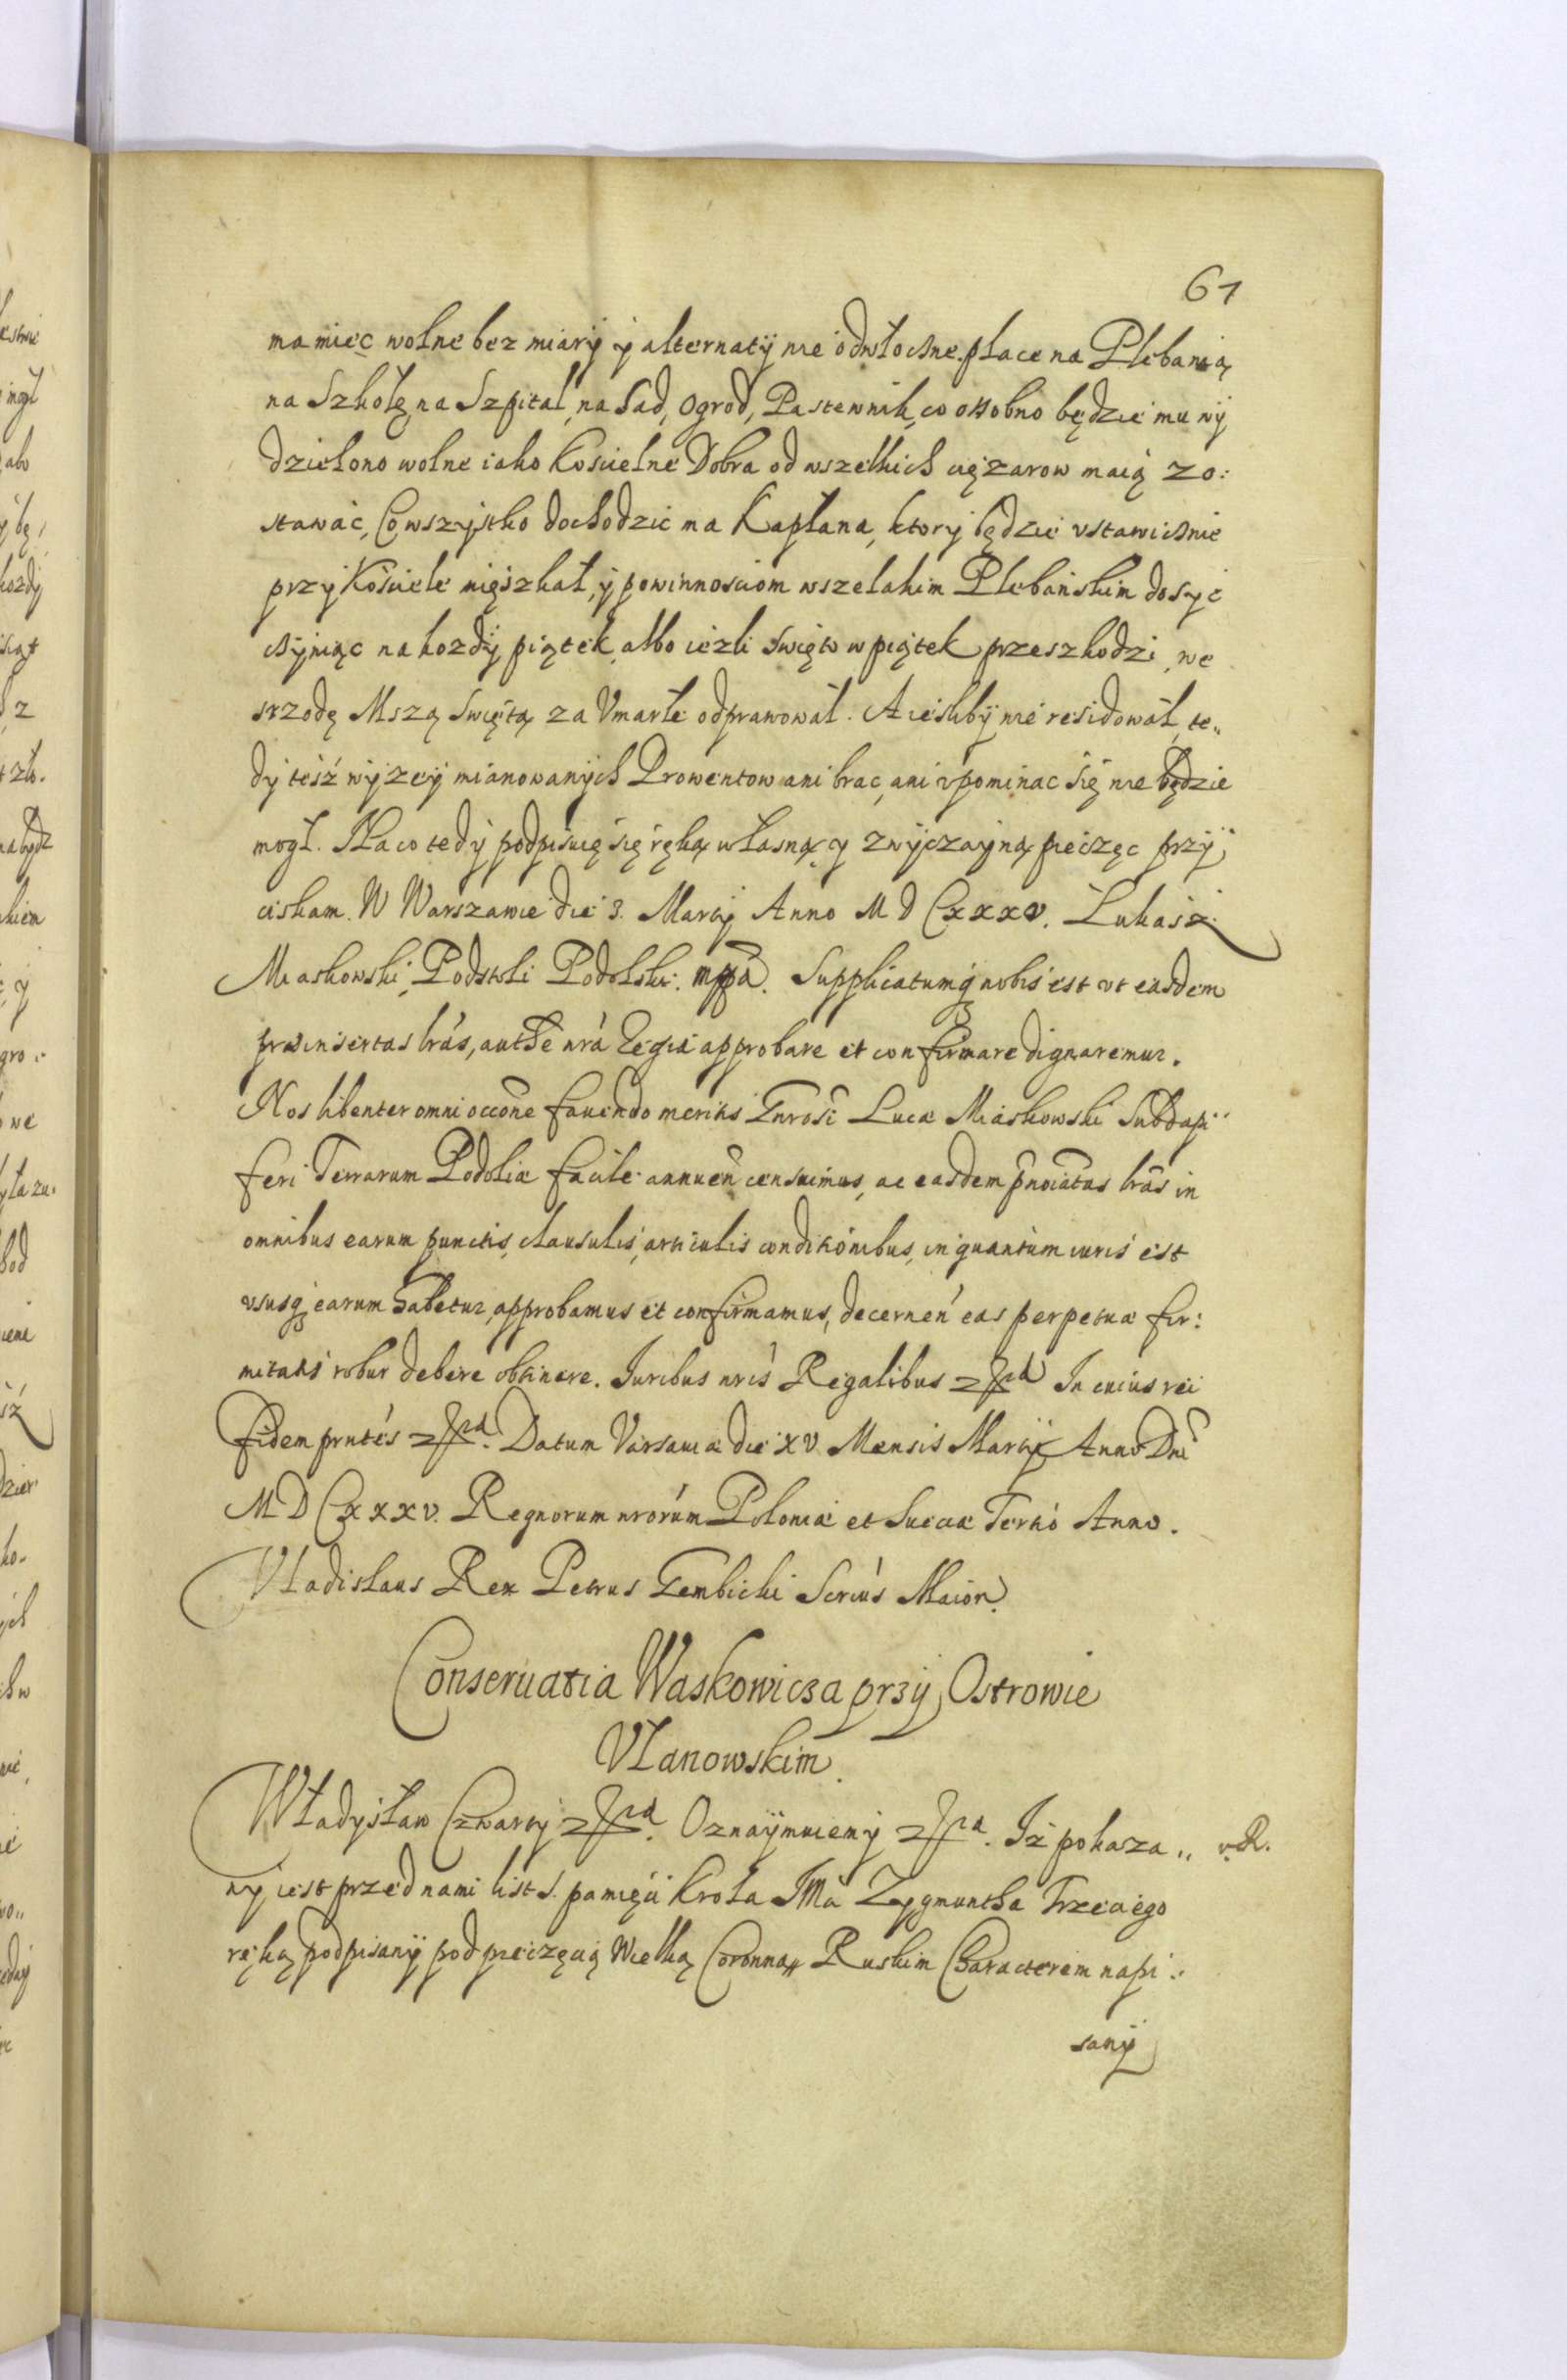 61
ma miec wolne bez miary y alternaty nie odwłoczne place na Plebanią
na Szkołę, na Szpital, na Sad, Ogrod, Pastewnik, co ossobno będzie mu wy
dzielono wolne iako Koscielne Dobra od wszelkich cięzarow maią zo:
stawac, Co wszystko dochodzic ma Kapłana, ktory będzie vstawicznie
przy Kościele mięszkał, y powinnosciom wszelakim Plebańskim dosyc
czyniąc na kozdy piątek, albo iezli swięto w piątek przeszkodzi, we
srzodę Mszą swiętą za Vmarłe odprawował. A iesliby nie residował, te„
dy tesz wyzey mianowanych Prowentow ani brac, ani vpominac się nie będzie
mogł. Na co tedy podpisuię się ręką własną y zwyczayną pieczęc przy
ciskam. W Warszawie die 3. Martij Anno MDCXXXV. Łukasz
Miaskowski Podstoli Podolski. mppa. Supplicatumq nobis est vt easdem
præinsertas lrás, authe nrá Regia approbare et confirmare dignaremur.
Nos libenter omni occone favendo meritis Gnrosi Lucæ Miaskowski Subdapi„
feri Terrarum Podoliæ facile annuen censuimus, ac easdem pnoiatas lrás in
omnibus earum punctis, clausulis, articulis conditiónibus, in quantum iuris est
vsusq earum habetur, approbamus et confirmamus, decernen eas perpetuæ fir:
mitatis robur debere obtinere. Iuribus nris Regalibus etc. In cuius rei
fidem prntés etc. Datum Varsauiæ die XV Mensis Martij Anno Dni
MDCXXXV. Regnorum nrorúm Poloniæ et Sueciæ Tertió Anno.
Vladislaus Rex Petrus Gembicki Scriús Maior.
Conseruatia Waskowicza przy Ostrowie
Vlanowskim.
Władysław Czwarty etc. Oznaymuiemy etc. Iż pokaza„ v.R.
ny iest przed nami list s. pamięci Krola JMci Zygmuntha Trzeciego
ręką podpisany pod pieczęcią Wielką Coronną Ruskim Characterem napi:
sany